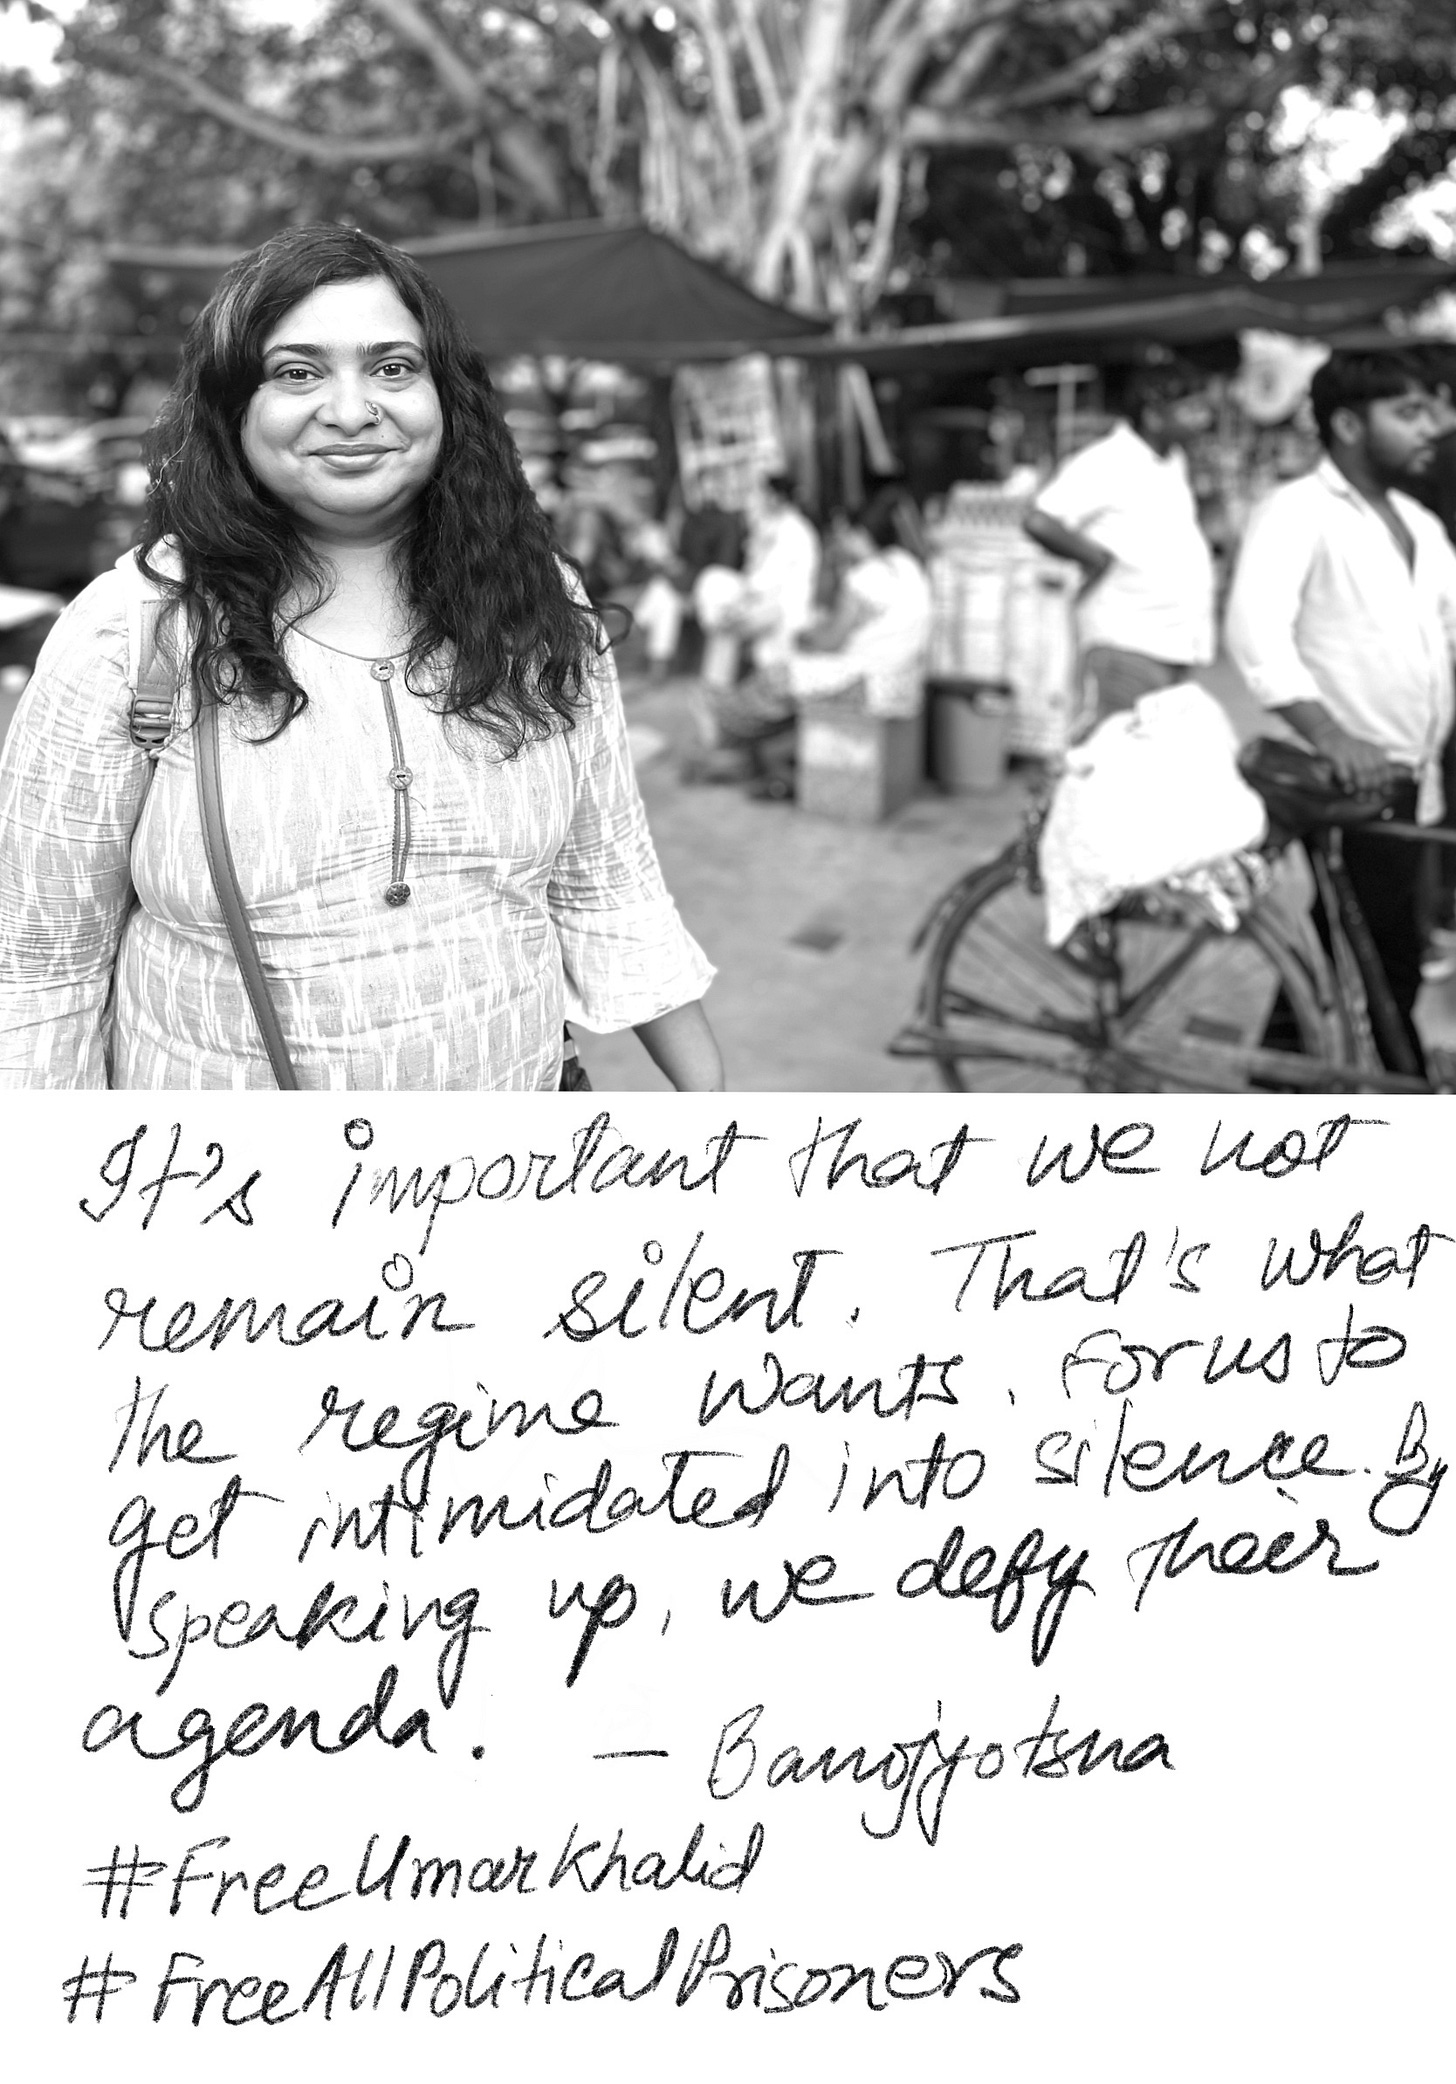 It's important that we not
remain silent. That's what
the regime wants. For us to
get intimidated into silence. By
speaking up, we defy their
agenda. — Banojyotsna
#FreeUmarKhalid
#FreeAllPoliticalPrisoners